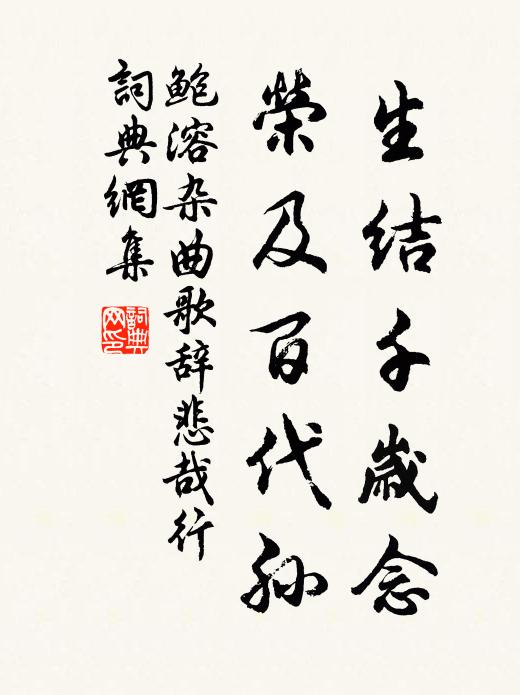 生结千歲念
榮及百代孙
鲍溶杂曲歌辞悲哉行
詞典網集
詞典网印